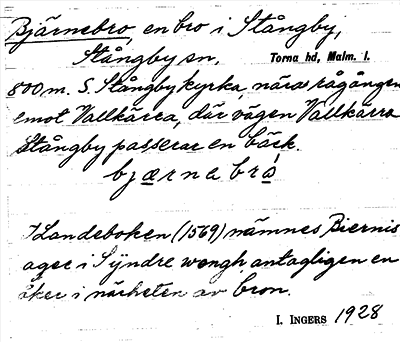 Bjärnebro, en bro i Stångby,
Stångby sn, Torna hd, Malm. l.
800 m. S. Stångby kyrka, nära rågången
emot Vallkärra, där vägen Vallkärra
Stångby passerar en bäck.
bjærnabro
I Landeboken (1569) nämnes Biernis
ager i Syndre wongh, antagligen en
åker i närheten av bron.
I. INGERS 1928